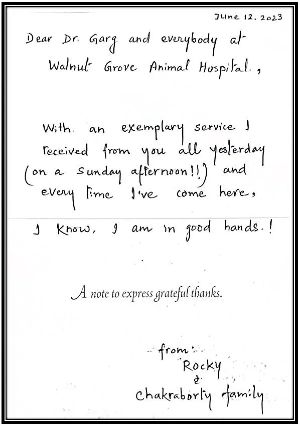 June 12, 2023
Dear Dr. Garg and everybody at
Walnut Grove Animal Hospital.,
With an exemplary service I
received from you all yesterday
(on a Sunday afternoon!!) and
every time I've come here,
I know, I am in good hands.!
A note to express grateful thanks.
from:
Rocky
&
Chakraborty family